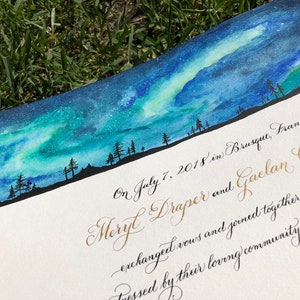 On July 7, 2018 in Brusque, Fran
Meryl Draper and Gaelan
exchanged vows and joined together
tressed by their loving community